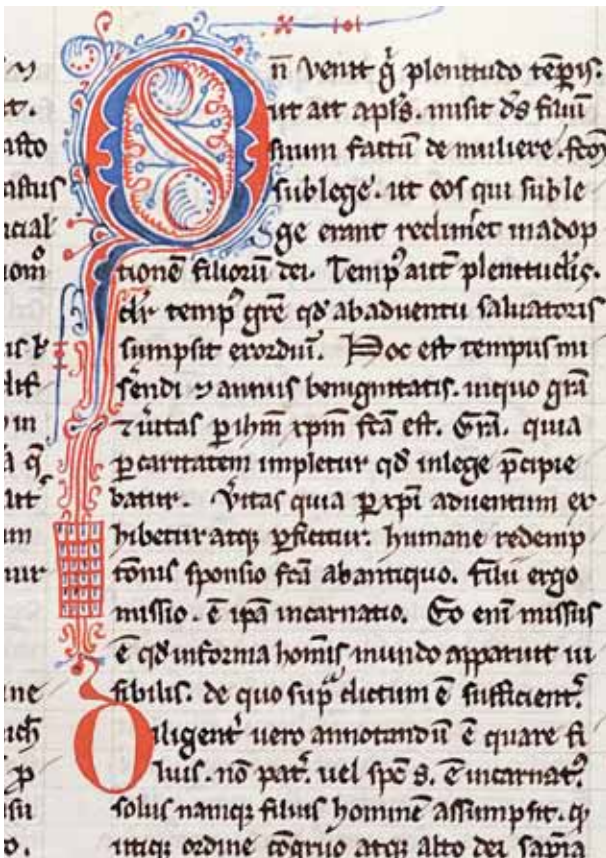 Qn̄ venit gͥ plenitudo tēpis.
ut ait apl's. misit d's filiū
suum factū de muliere. fcm̄
sub lege. ut eos qui sub le
ge erant redimēt in adop
tionē filiorū dei. Temp' aūt plenitudīs.
dr̄ temp' grē qd̄ ab aduentu saluatoris
sumpsit exordiū. Hoc est tempus mi
sēndi ⁊ annus benignitatis. in quo grā
⁊ ūitas ꝑ ihm̄ xpm̄ fcā est. Grā. quia
ꝑ caritatem impletur qd̄ in lege p̄cipie
batur. Ūitas quia ꝑ xpī aduentum ex
hibetur atqꝫ ꝑficitur. humane redemp
tōnis sponsio fcā ab antiquo. filii ergo
missio. ē ipā incarnatio. Eo eni missus
ē qd̄ in forma hoīs mundo apparuit ui
sibilis. de quo sup̄ dictum ē sufficient'.
Diligent' uero annotandū ē quare fi
lius. nō pat'. uel spc̄ s. ē incarnat'.
solus namqꝫ filius hominē assumpsit. qͥ
utiqꝫ ordine cōgruo atqꝫ alto dei sapīa